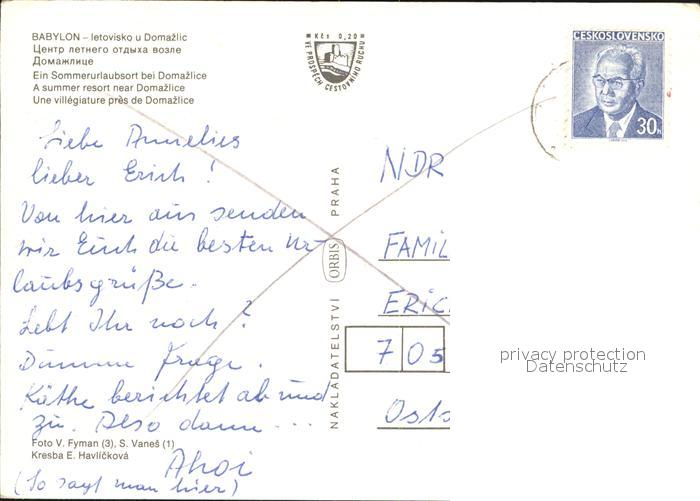 BABYLON – letovisko u Domažlic
Центр летнего отдыха возле
Домажлице
Ein Sommerurlaubsort bei Domažlice
A summer resort near Domažlice
Une villégiature près de Domažlice
Kčs 0,20
VE PROSPĚCH CESTOVNÍHO RUCHU
ČESKOSLOVENSKO
30h
Liebe Annelies
lieber Erich!
Von hier aus senden
wir Euch die besten Ur-
laubsgrüße.
Lebt Ihr noch?
Dumme Frage.
Käthe berichtet ab und
zu. Also dann ...
Ahoi
(So sagt man hier)
Foto V. Fyman (3), S. Vaneš (1)
Kresba E. Havlíčková
NAKLADATELSTVÍ ORBIS PRAHA
NDR
FAMIL
ERIC
705
Osts
privacy protection
Datenschutz